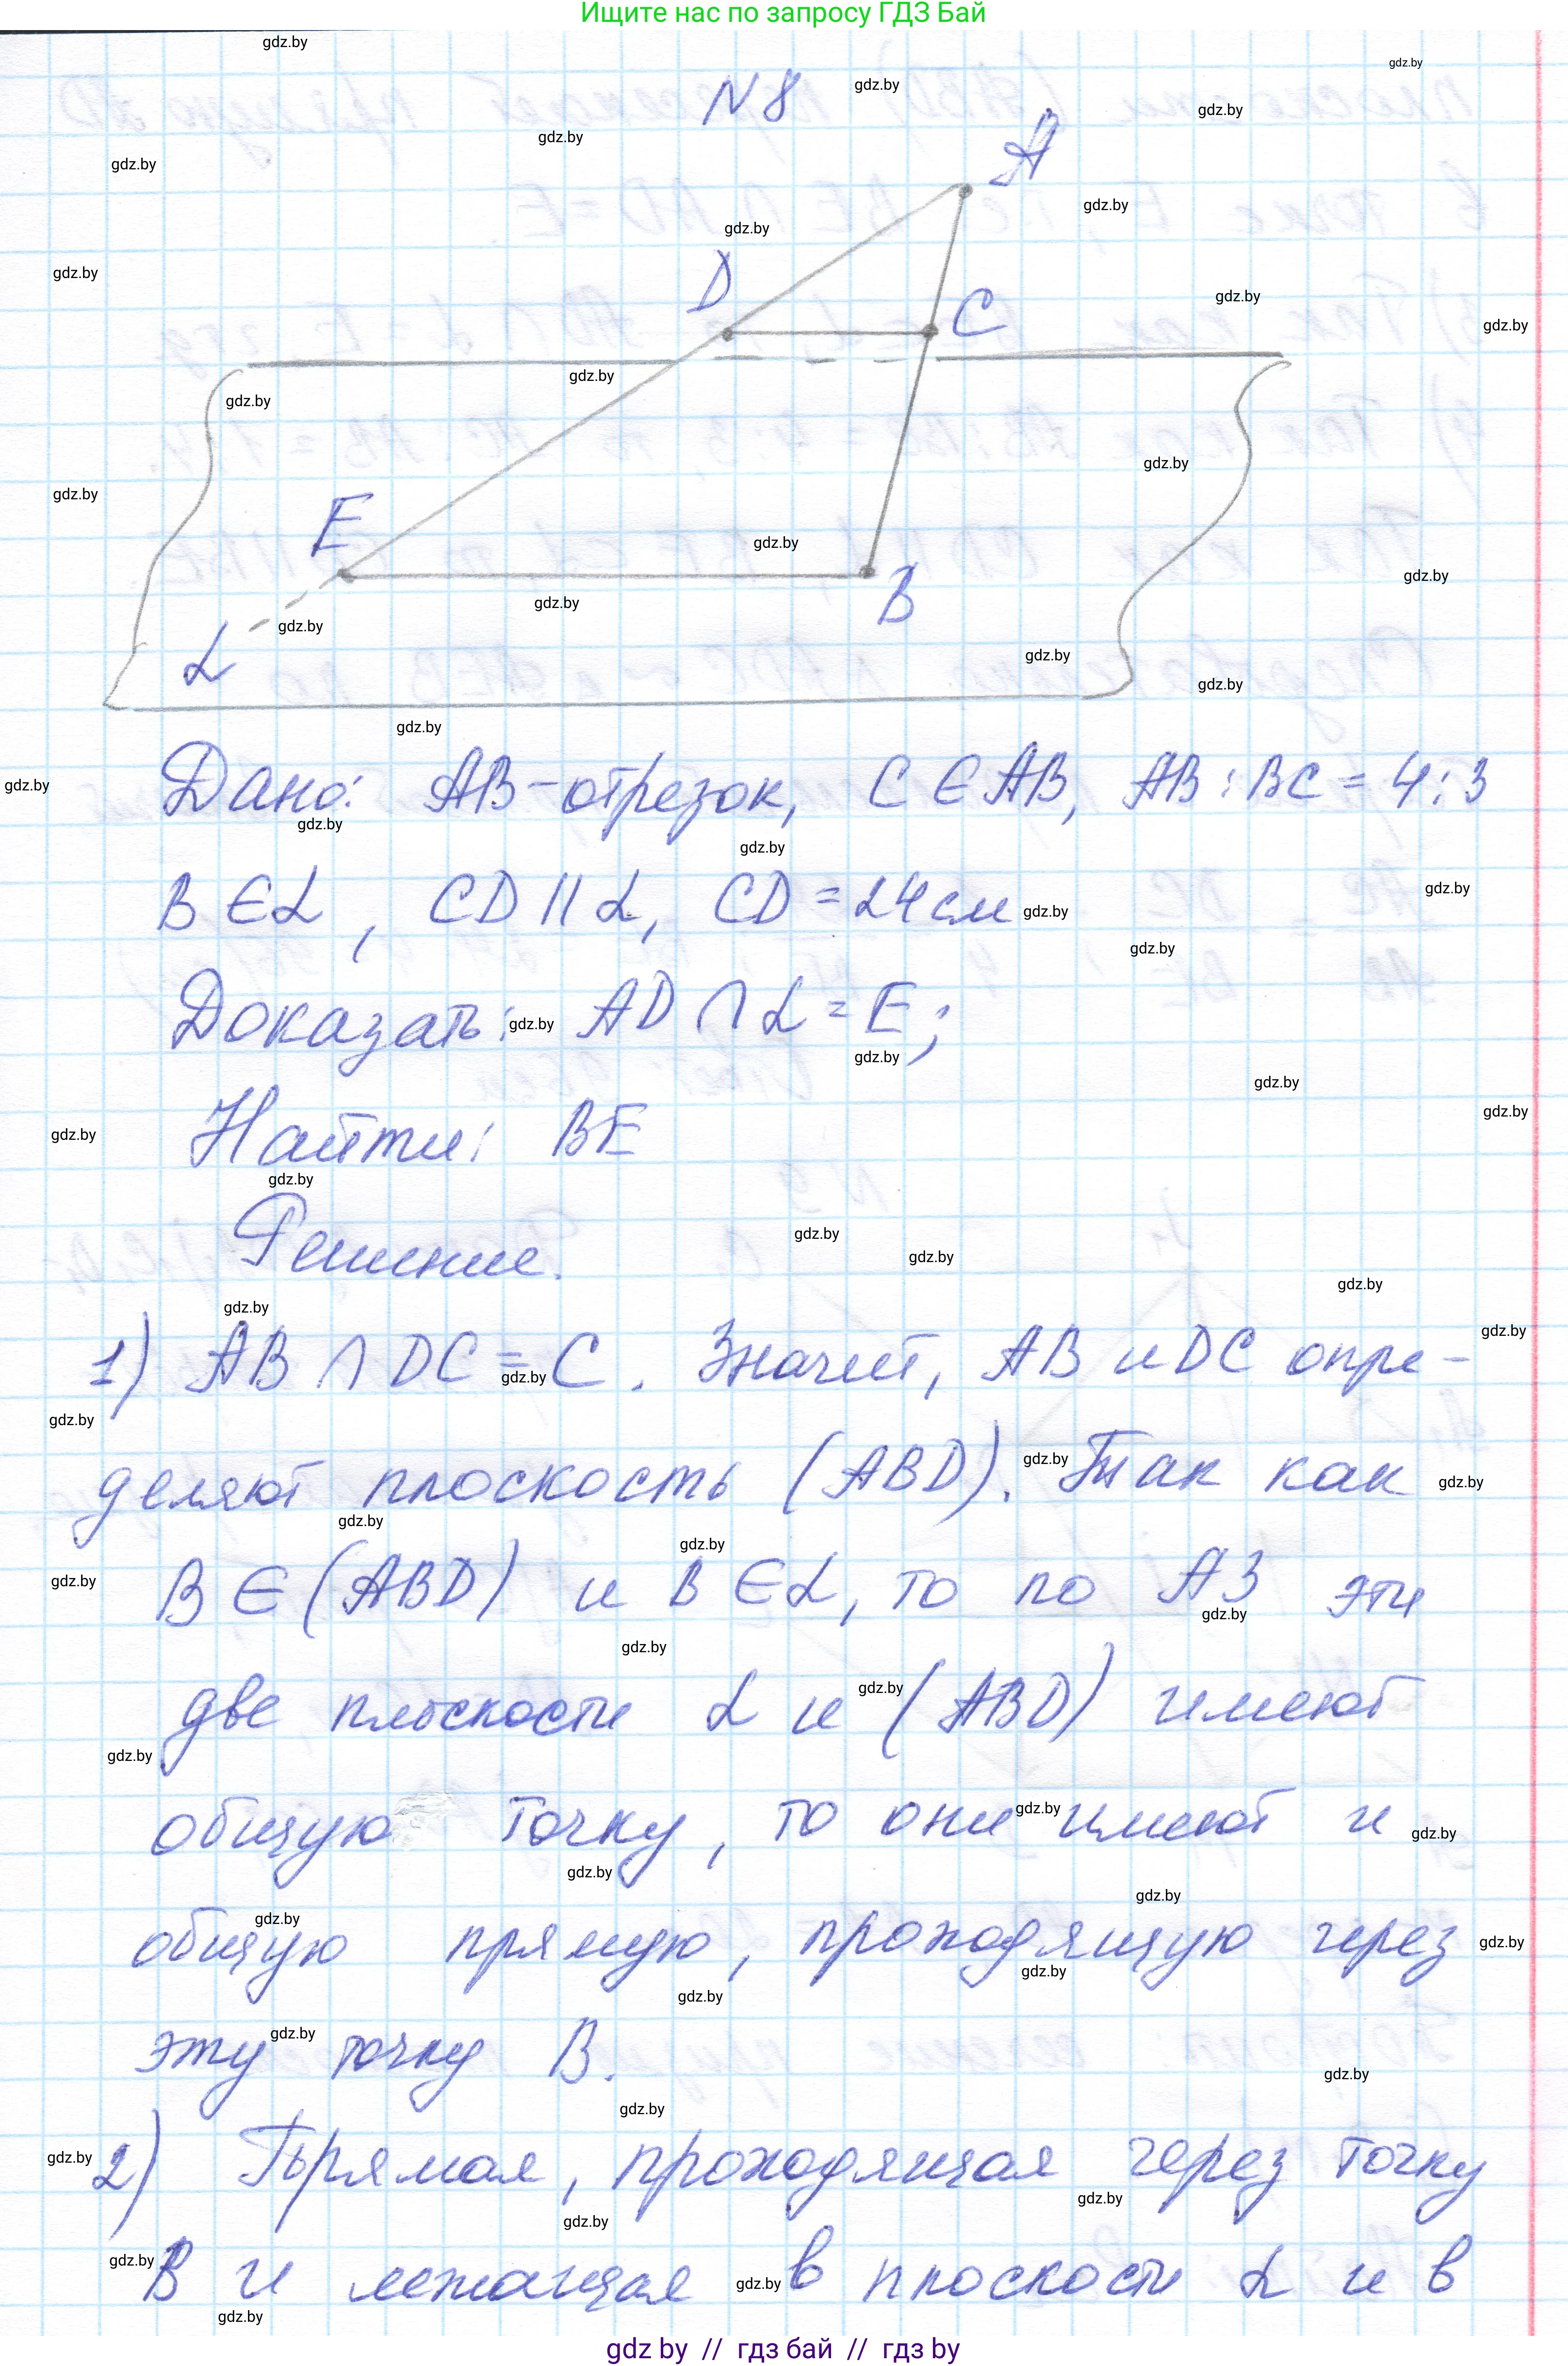 Ищите нас по запросу ГДЗ Бай
N 8
A
D
C
E
B
α
Дано: AB-отрезок, C ∈ AB, AB : BC = 4 : 3
B ∈ α, CD || α, CD = 24 см
Доказать: AD ∩ α = E;
Найти: BE
Решение.
1) AB ∩ DC = C. Значит, AB и DC опре-
деляют плоскость (ABD). Так как
B ∈ (ABD) и B ∈ α, то по А3 эти
две плоскости α и (ABD) имеют
общую точку, то они имеют и
общую прямую, проходящую через
эту точку B.
2) Прямая, проходящая через точку
B и лежащая в плоскости α и в
gdz by // гдз бай // гдз by